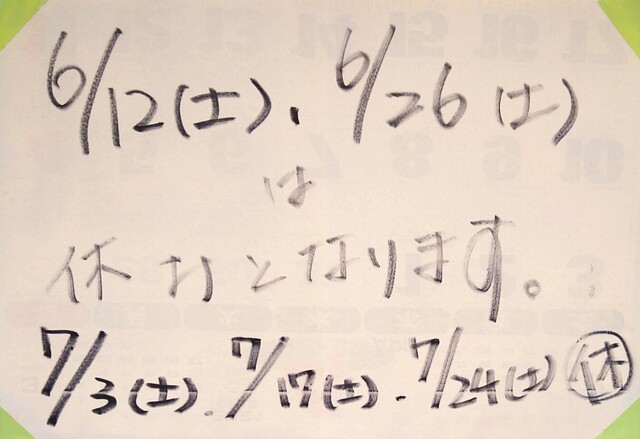 6/12(土)、6/26(土)
は
休みとなります。
7/3(土).7/17(土).7/24(土)㊡